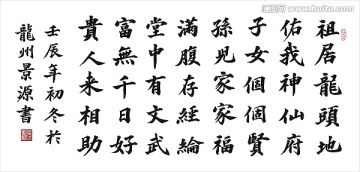 祖居龍頭地
佑我神仙府
子女個個賢
孫兒家家福
滿腹存經綸
堂中有文武
富無千日好
貴人来相助
壬辰年初冬於
龍州景源書